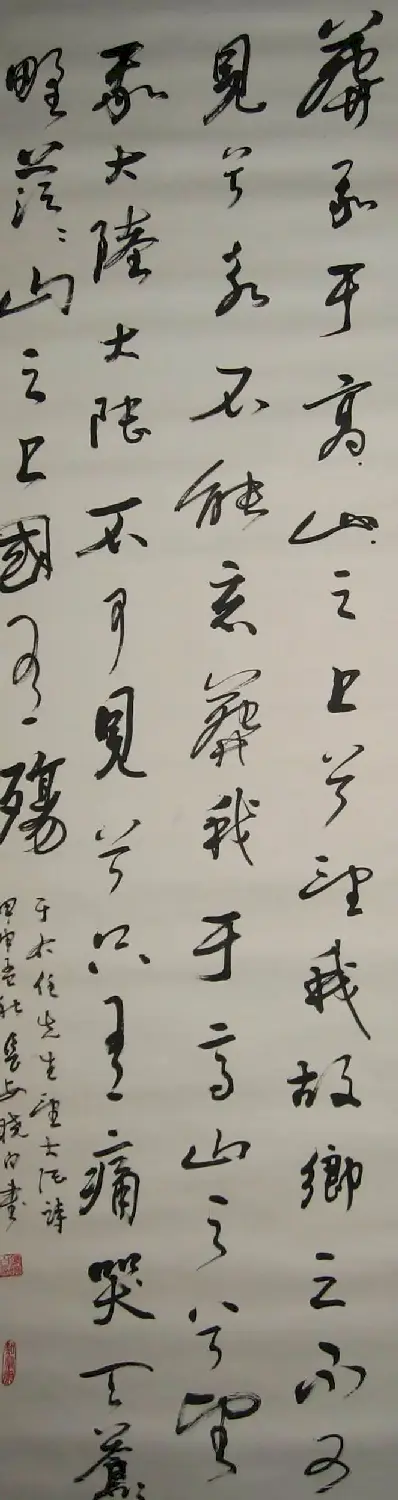 葬我于高山之上兮望我故鄉之不可
見兮永不能忘葬我于高山之兮望
我大陸大陸不可見兮只有痛哭天蒼〻
野茫〻山之上國有殤
于右任先生望大陸詩
甲申孟秋長安曉白書